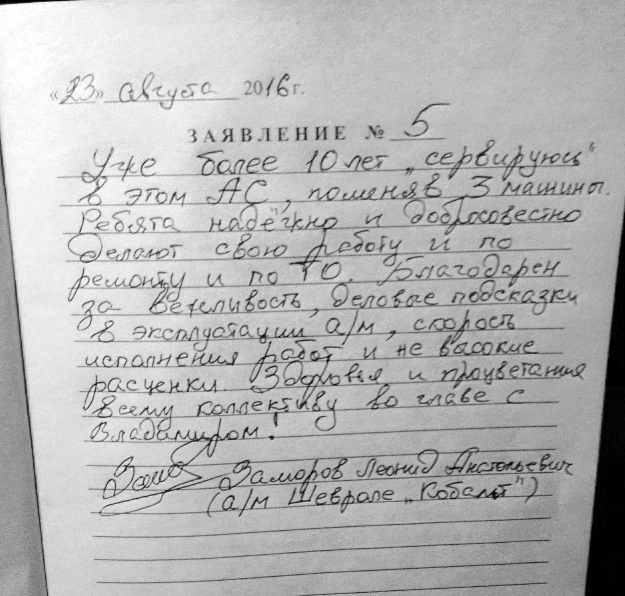 «23» августа 2016г.
ЗАЯВЛЕНИЕ № 5
Уже более 10 лет „сервируюсь“
в этом АС, поменяв 3 машины.
Ребята надёжно и добросовестно
делают свою работу и по
ремонту и по ТО. Благодарен
за вежливость, деловые подсказки
в эксплуатации а/м, скорость
исполнения работ и не высокие
расценки. Здоровья и процветания
всему коллективу во главе с
Владимиром!
Замор Заморов Леонид Анатольевич
(а/м Шевроле „Кобальт")